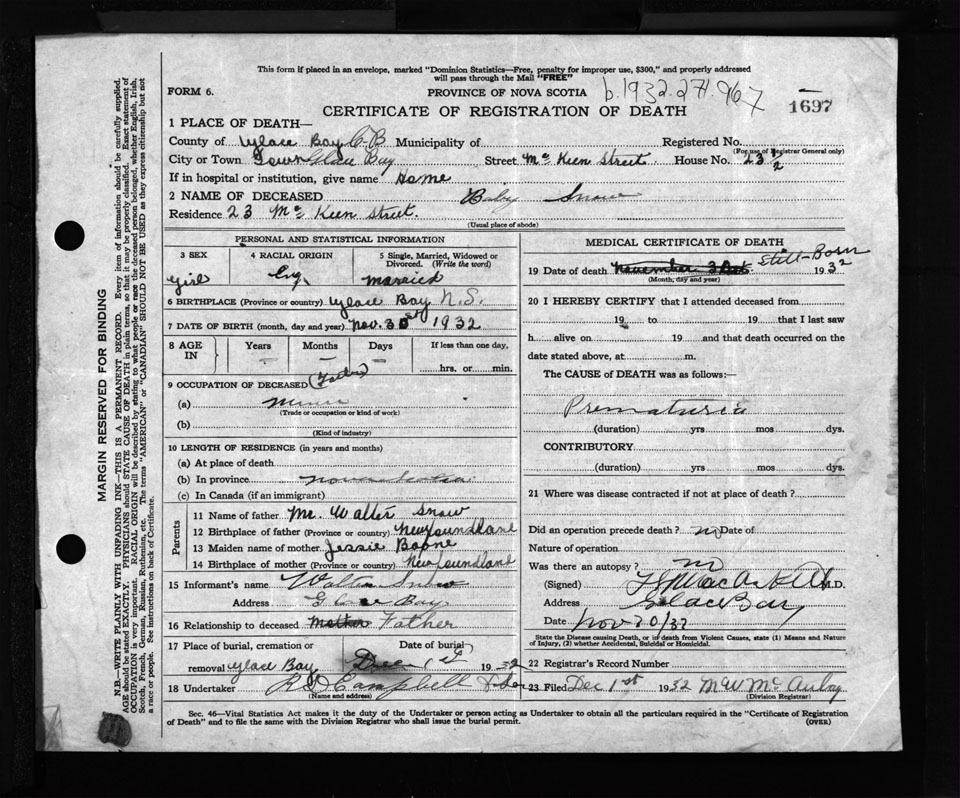 This form if placed in an envelope, marked "Dominion Statistics—Free, penalty for improper use, $300," and properly addressed
will pass through the Mail "FREE"
FORM 6.
PROVINCE OF NOVA SCOTIA
b.1932.271.967
CERTIFICATE OF REGISTRATION OF DEATH
1697
1 PLACE OF DEATH—
County of Glace Bay C-B Municipality of Registered No.
(For use of Registrar General only)
City or Town Town Glace Bay Street Mc Keen Street House No. 23 1/2
If in hospital or institution, give name Home
2 NAME OF DECEASED Baby Snow
Residence 23 Mc Keen Street.
(Usual place of abode)
PERSONAL AND STATISTICAL INFORMATION
3 SEX
4 RACIAL ORIGIN
5 Single, Married, Widowed or Divorced. (Write the word)
Girl
Eng
Married
6 BIRTHPLACE (Province or country) Glace Bay N.S.
7 DATE OF BIRTH (month, day and year) Nov. 30st 1932
8 AGE IN
Years
Months
Days
If less than one day,
hrs. or min.
9 OCCUPATION OF DECEASED (Father)
(a) Miner
(Trade or occupation or kind of work)
(b)
(Kind of industry)
10 LENGTH OF RESIDENCE (in years and months)
(a) At place of death
(b) In province Nova Scotia
(c) In Canada (if an immigrant)
Parents
11 Name of father Mr. Walter Snow
12 Birthplace of father (Province or country) Newfoundland
13 Maiden name of mother Jessie Boone
14 Birthplace of mother (Province or country) Newfoundland
15 Informant's name Walter Snow
Address Glace Bay
16 Relationship to deceased Mother Father
17 Place of burial, or removal Glace Bay
Date of burial
Dec 1st 1932
18 Undertaker R D Campbell & Son
(Name and address)
MEDICAL CERTIFICATE OF DEATH
Still-Born
19 Date of death November 30st. 1932
(Month, day and year)
20 I HEREBY CERTIFY that I attended deceased from
19 to 19 that I last saw
h alive on 19 and that death occurred on the
date stated above, at m.
The CAUSE of DEATH was as follows:—
Prematuria
(duration) yrs mos dys.
CONTRIBUTORY
(duration) yrs mos dys.
21 Where was disease contracted if not at place of death?
Did an operation precede death? no Date of
Nature of operation
Was there an autopsy? no
(Signed) M.D.
Address Glace Bay
Date Nov 30/32
State the Disease causing Death, or in death from Violent Causes, state (1) Means and Nature
of Injury, (2) whether Accidental, Suicidal or Homicidal.
22 Registrar's Record Number
23 Filed Dec 1st 1932 M W McAulay
(Division Registrar)
Sec. 46—Vital Statistics Act makes it the duty of the Undertaker or person acting as Undertaker to obtain all the particulars required in the "Certificate of Registration
of Death" and to file the same with the Division Registrar who shall issue the burial permit.
(OVER)
MARGIN RESERVED FOR BINDING
N.B.—WRITE PLAINLY WITH UNFADING INK—THIS IS A PERMANENT RECORD. Every item of information should be carefully supplied.
AGE should be stated EXACTLY. PHYSICIANS should STATE CAUSE OF DEATH in plain terms, so that it may be properly classified. Exact statement of
OCCUPATION is very important. RACIAL ORIGIN will be described by stating to what people or race the deceased person belonged, whether English, Irish,
Scotch, French, German, Russian, Ruthenian, etc. The terms "AMERICAN" or "CANADIAN" SHOULD NOT BE USED as they express citizenship but not
a race or people. See instructions on back of Certificate.